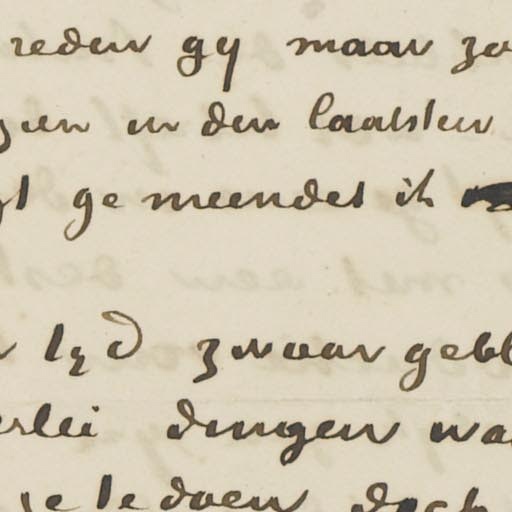 reden gij maar zo
zien in den laatsten
gt ge meendet ik
n tijd zwaar gebl
erlei dingen wa
je te doen doch